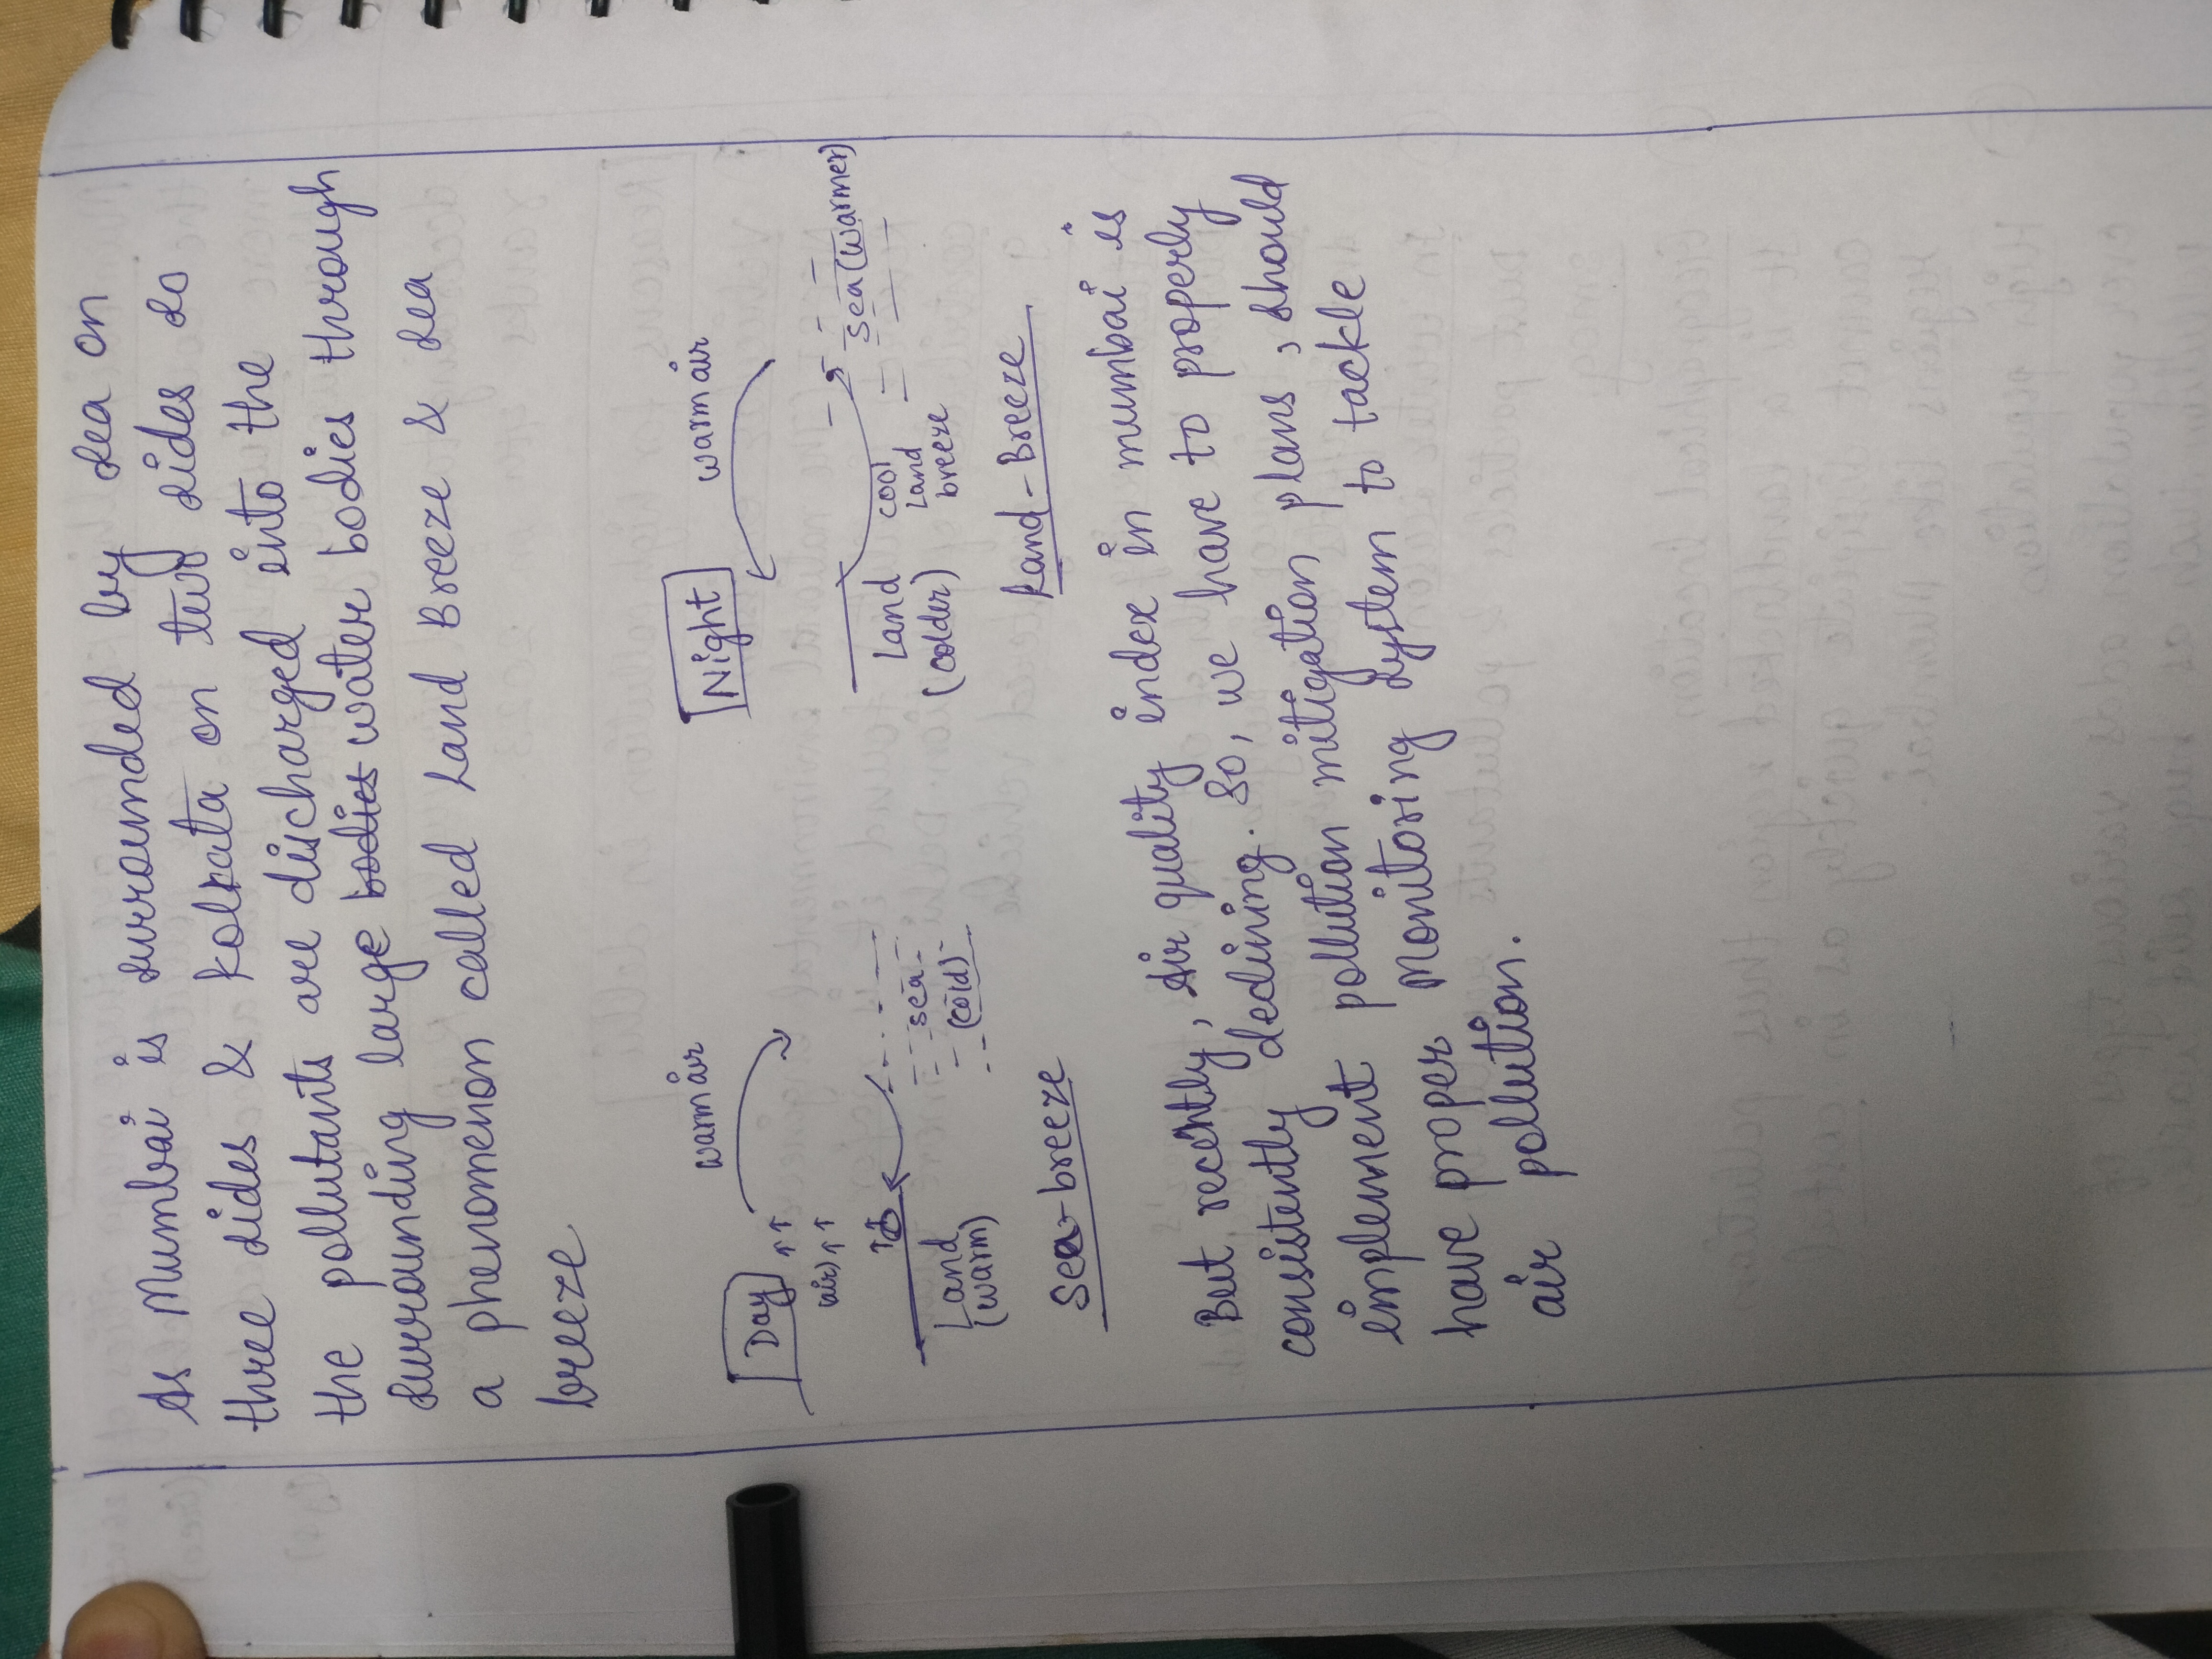 As Mumbai is surrounded by sea on
three sides & Kolkata on two sides so
the pollutants are discharged into the
surrounding large bodies water bodies through
a phenomenon called Land Breeze & sea
breeze
Day
warm air
air
Land
(warm)
sea
(cold)
Sea-breeze
Night
warm air
sea (warmer)
cool
Land
breeze
Land
(colder)
Land-Breeze
But recently, Air quality index in mumbai is
consistently declining. So, we have to properly
implement pollution mitigation plans, should
have proper Monitoring system to tackle
air pollution.